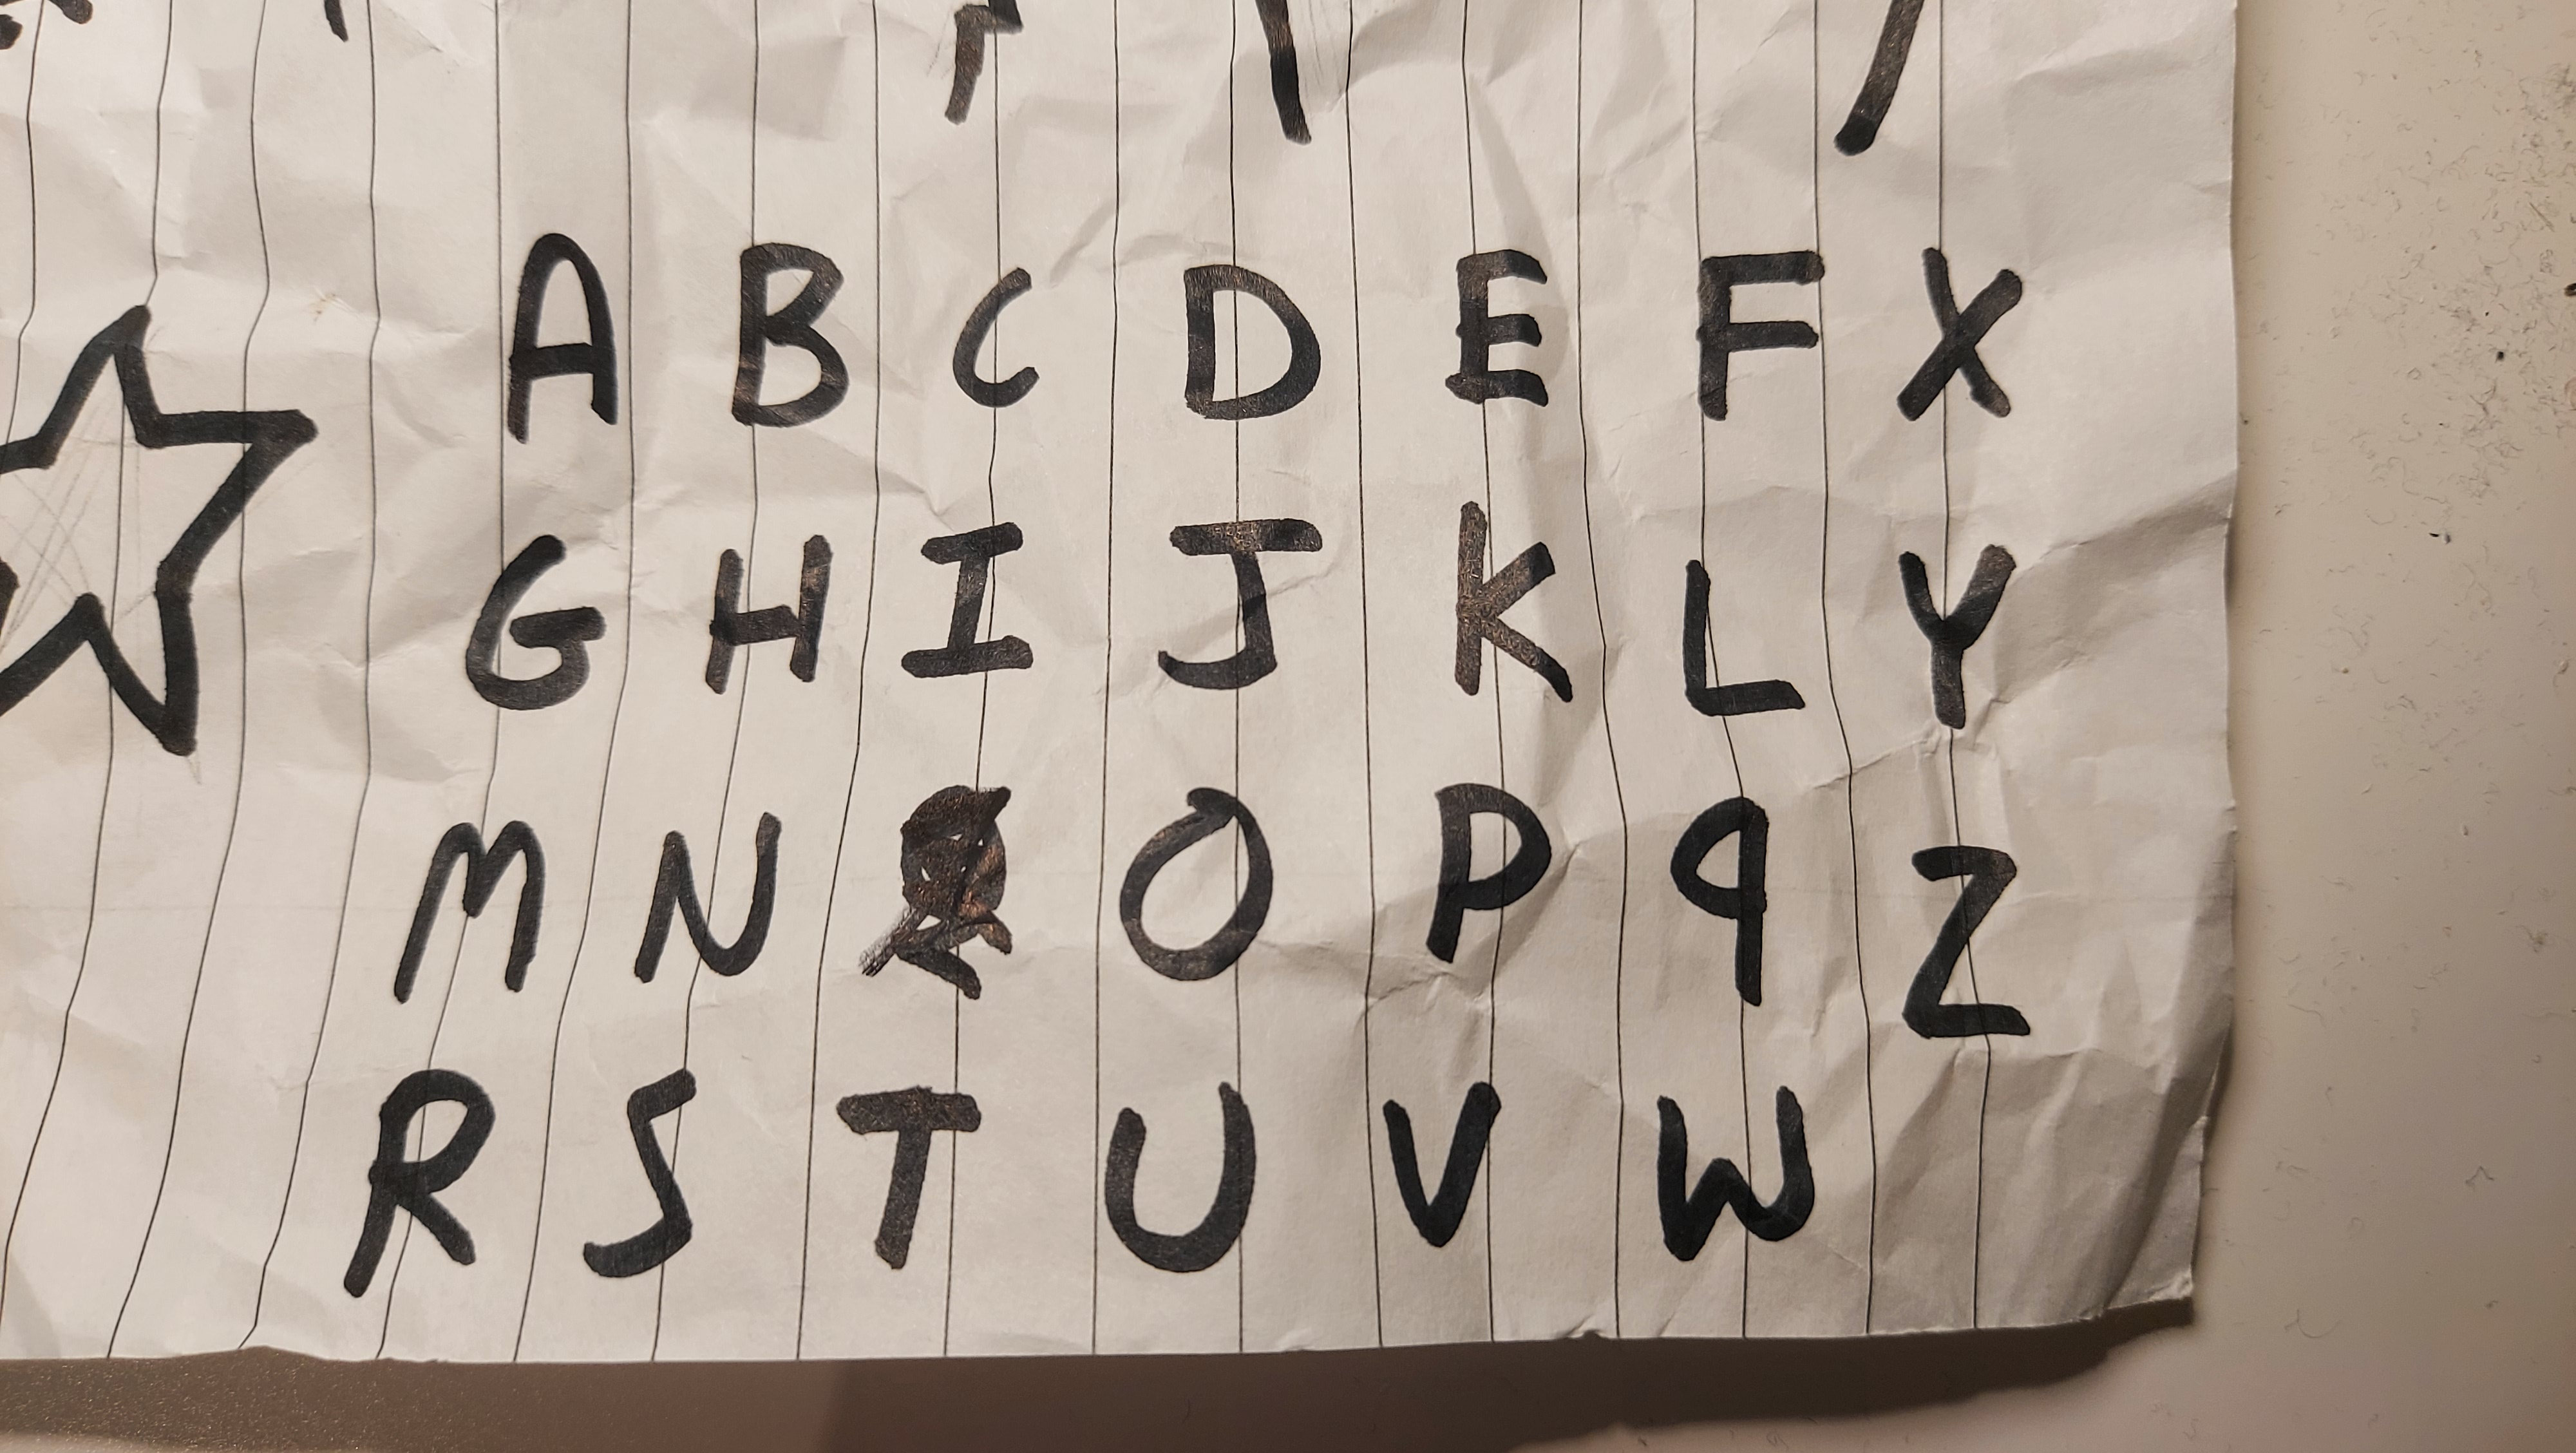 A B C D E F X
G H I J K L Y
M N O P q Z
R S T U V W